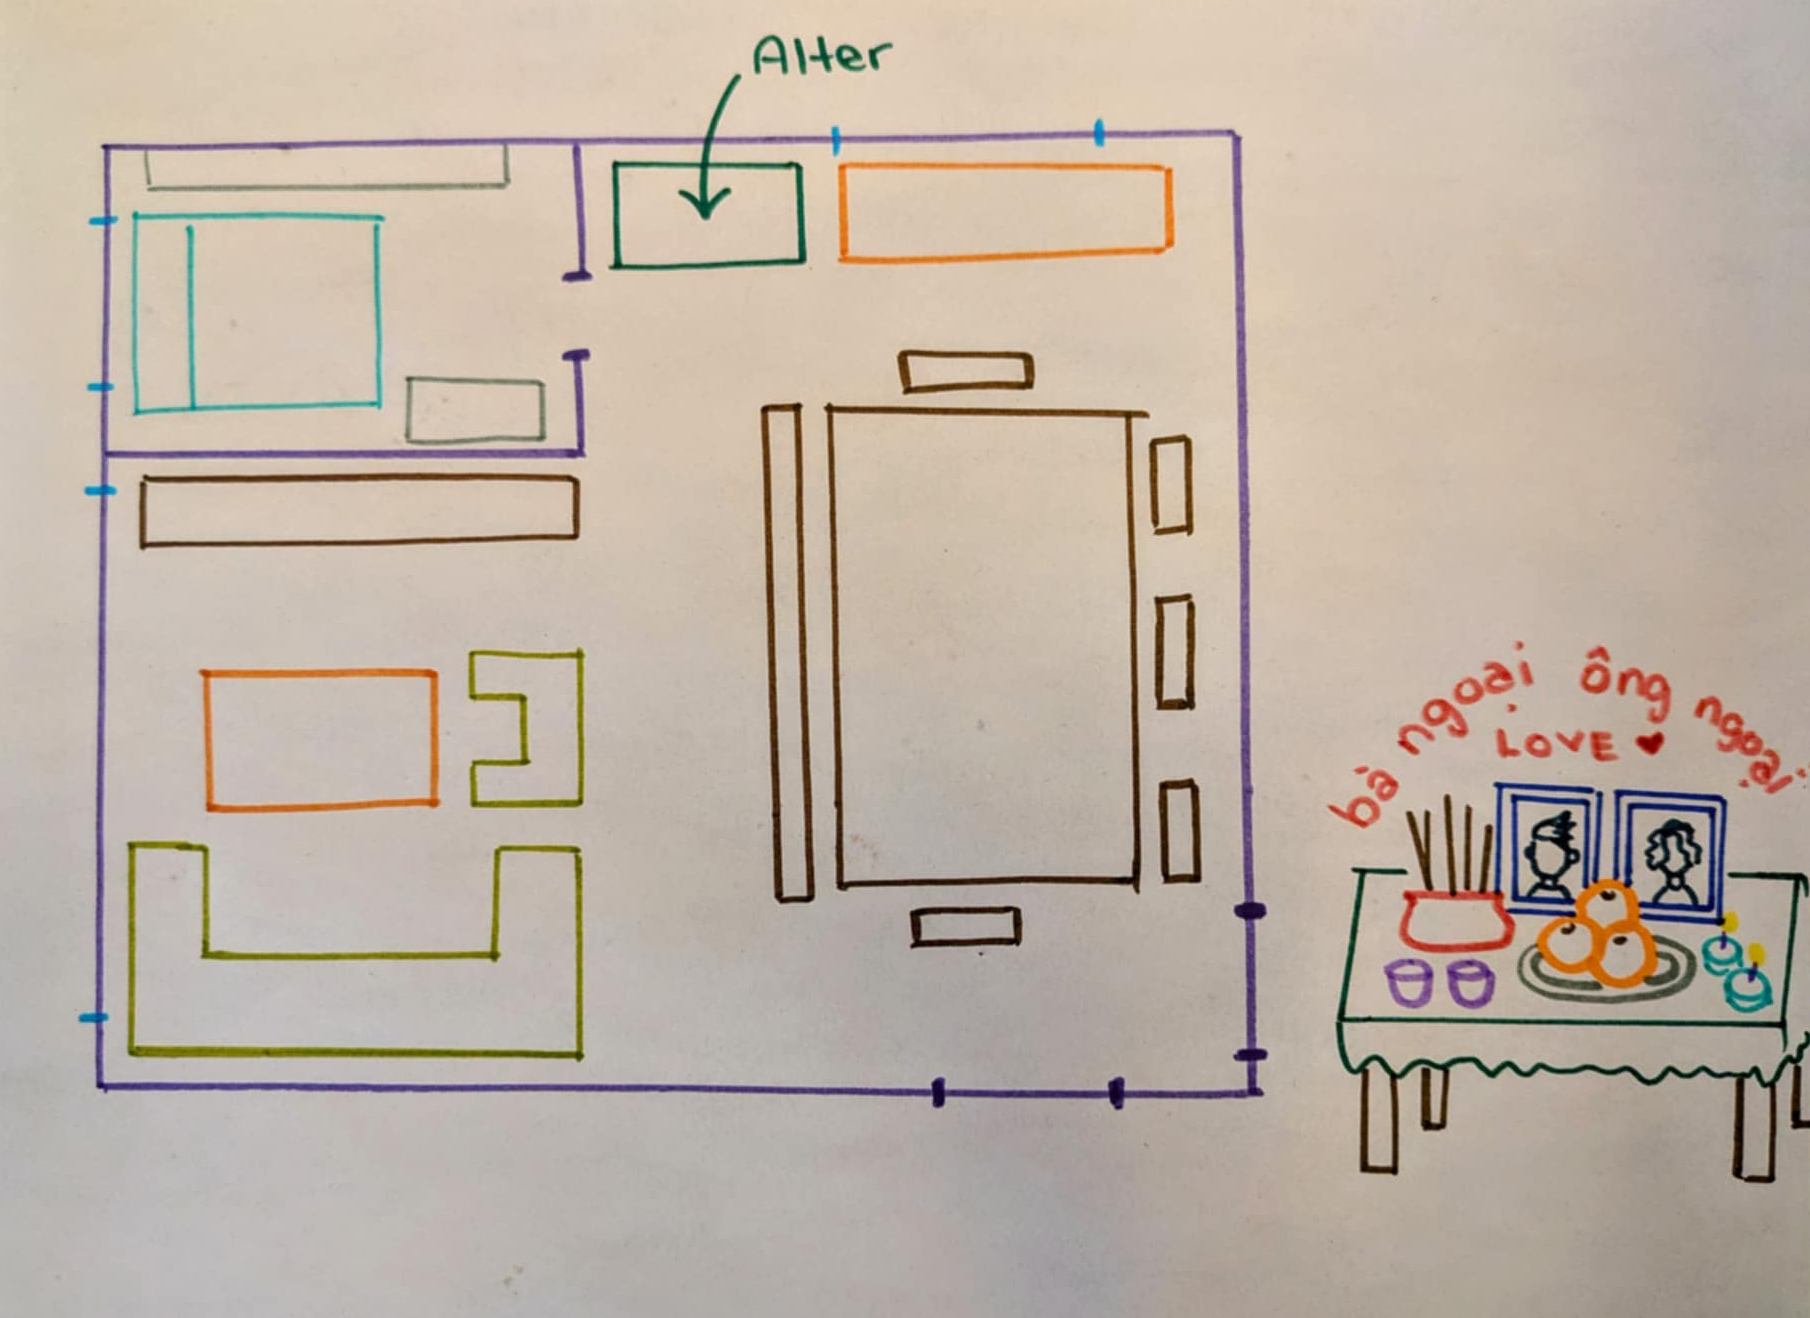 Alter
bà ngoại ông ngoại
LOVE